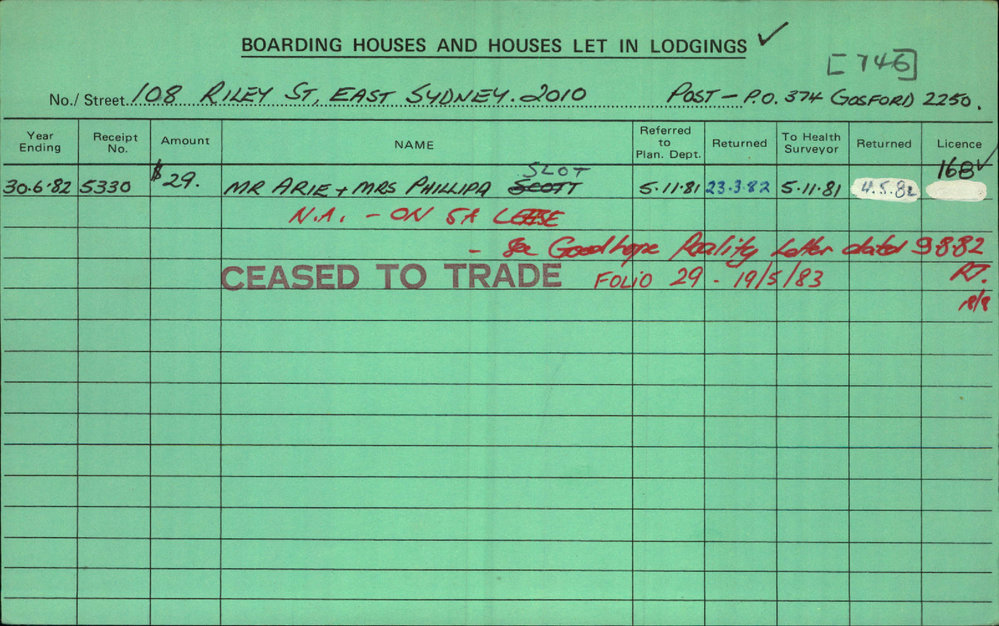 BOARDING HOUSES AND HOUSES LET IN LODGINGS ✓
[746]
No./ Street 108 RILEY ST, EAST SYDNEY. 2010 POST – P.O. 374 GOSFORD 2250.
Year Ending Receipt No. Amount NAME Referred to Plan. Dept. Returned To Health Surveyor Returned Licence
SLOT 168 ✓
30.6.82 5330 $29. MR ARIE + MRS PHILLIPA SCOTT 5.11.81 23.3.82 5.11.81 4.5.82
N.A. – ON 5A LEESE
- See Goodhope Reality Letter dated 9.8.82
CEASED TO TRADE FOLIO 29 - 19/5/83